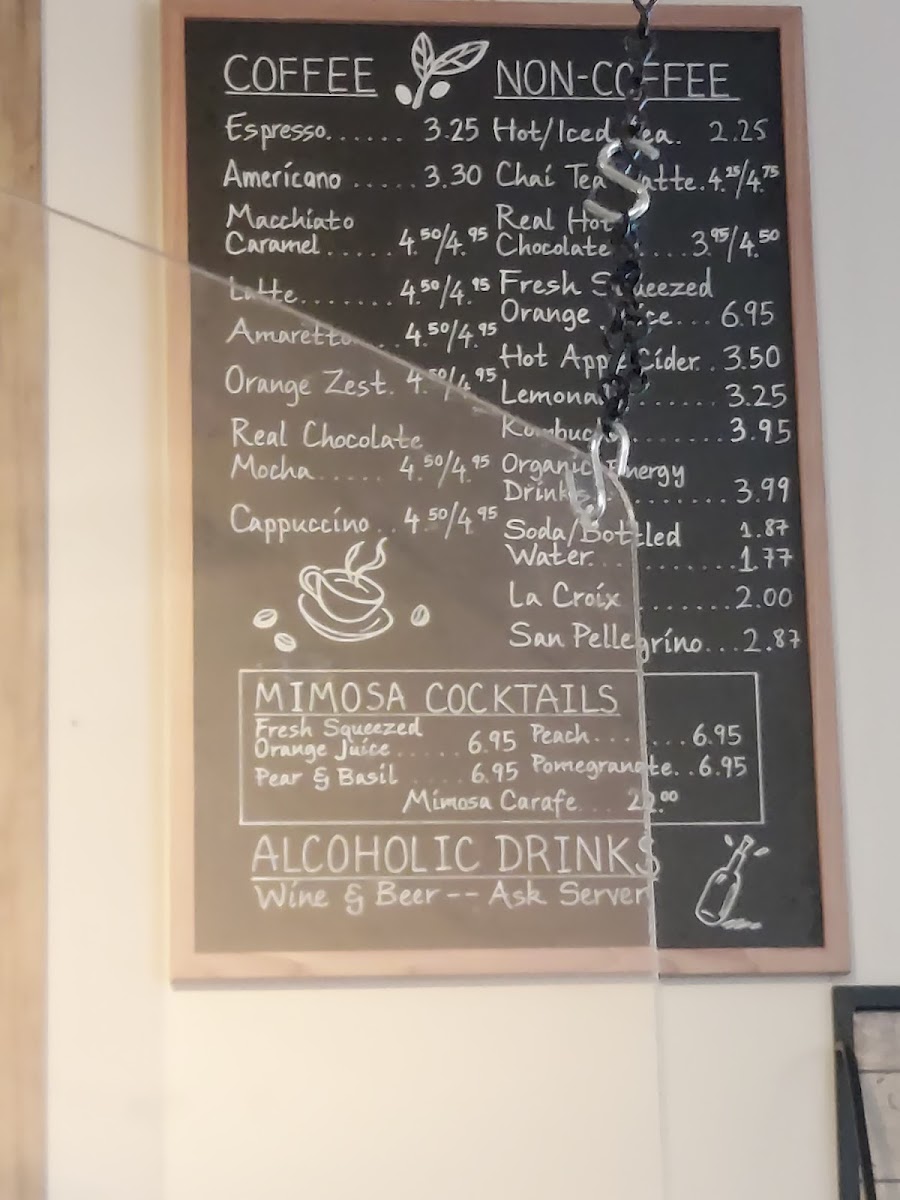 COFFEE
Espresso...... 3.25
Americano ..... 3.30
Macchiato
Caramel ...... 4.50/4.95
Latte....... 4.50/4.95
Amaretto.... 4.50/4.95
Orange Zest. 4.50/4.95
Real Chocolate
Mocha...... 4.50/4.95
Cappuccino.. 4.50/4.95
NON-COFFEE
Hot/Iced Tea. 2.25
Chai Tea Latte. 4.25/4.75
Real Hot
Chocolate .... 3.95/4.50
Fresh Squeezed
Orange Juice... 6.95
Hot Apple Cider.. 3.50
Lemonade....... 3.25
Kombucha....... 3.95
Organic Energy
Drinks......... 3.99
Soda/Bottled 1.87
Water.......... 1.77
La Croix ....... 2.00
San Pellegrino... 2.87
MIMOSA COCKTAILS
Fresh Squeezed
Orange Juice ..... 6.95
Pear & Basil .... 6.95
Peach....... 6.95
Pomegranate.. 6.95
Mimosa Carafe....
ALCOHOLIC DRINKS
Wine & Beer -- Ask Server